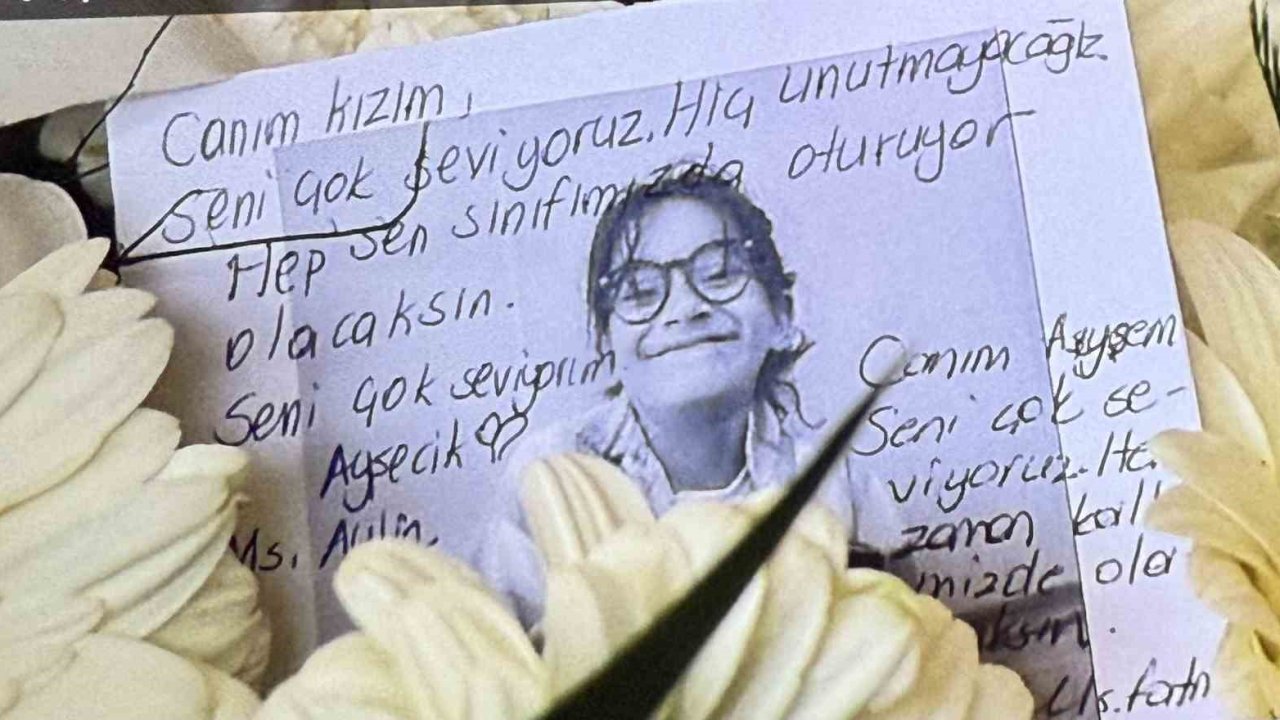 Canım kızım,
Seni çok seviyoruz. Hiç unutmayacağız.
Hep sen sınıfımızda oturuyor
olacaksın.
Seni çok seviyorum
Ayşecik
Ms. Aylin.
Canım Ayşem
Seni çok se-
viyoruz. He
zaman kal
mizde ola
ksın.
Ms. fatn